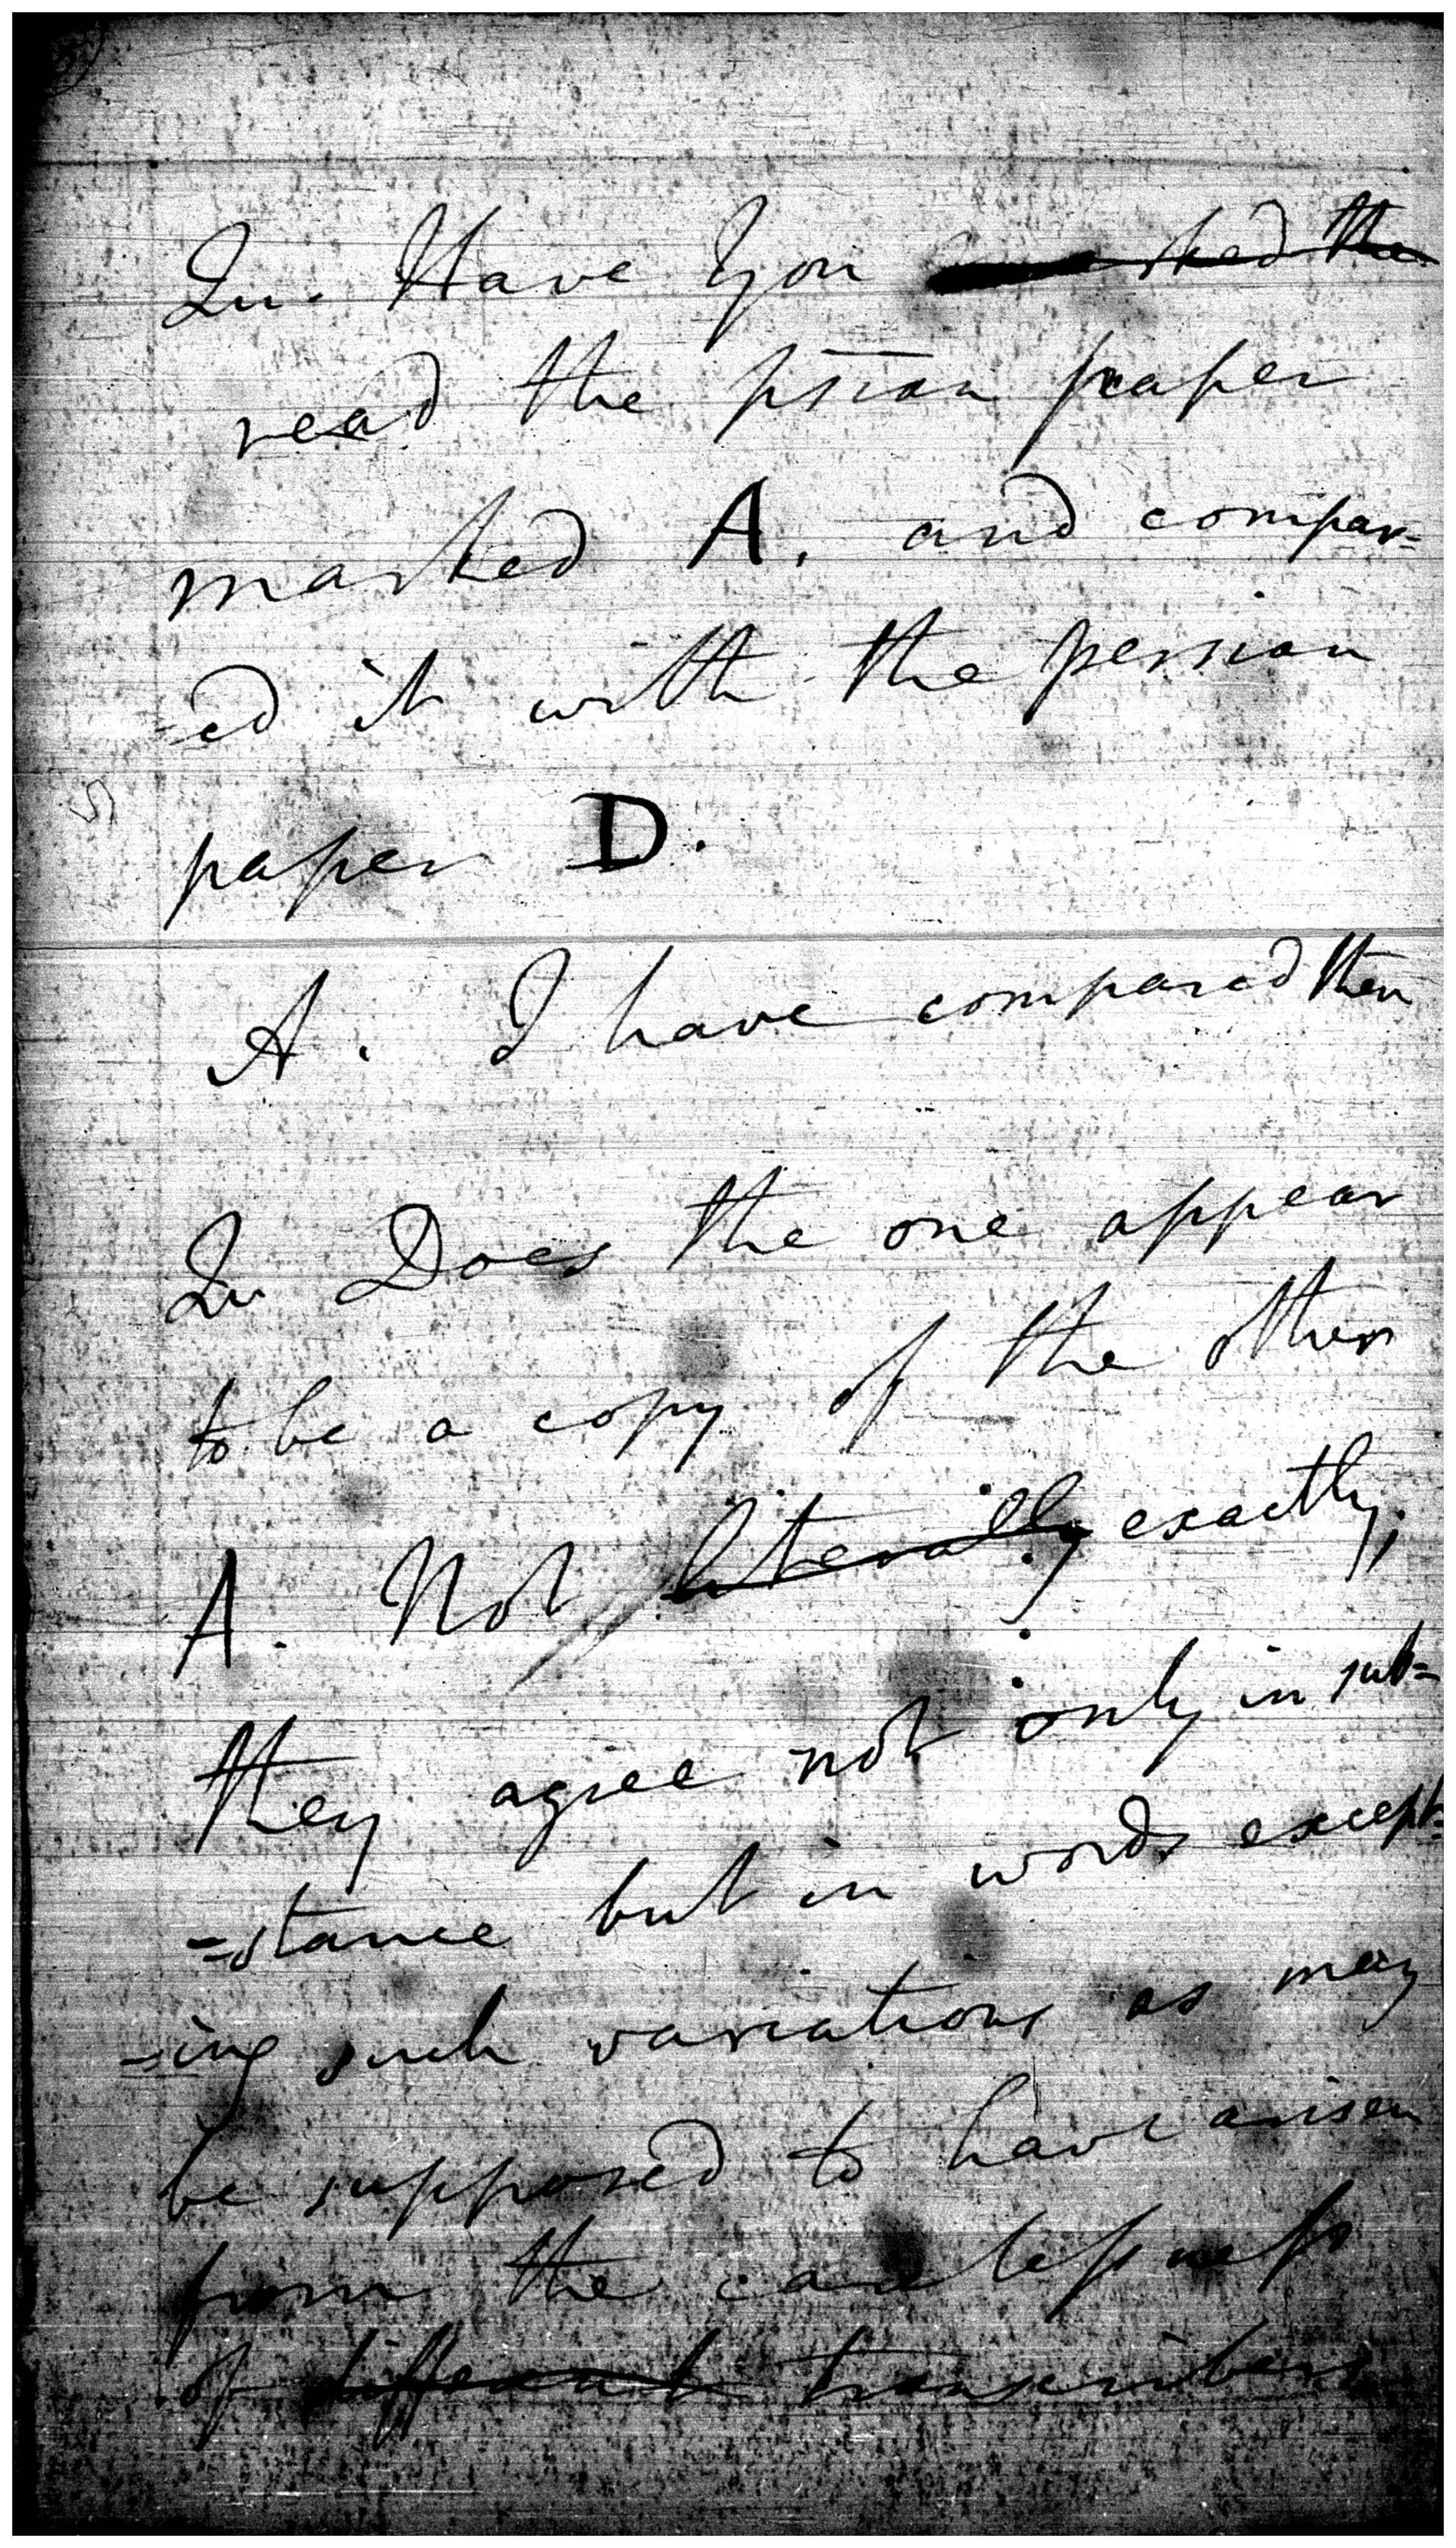 Qu. Have You the
read the psian paper
marked A. and compar=
=ed it with the persian
paper D.
A. I have compared them
Qu Does the one appear
to be a copy of the other
A. Not literally exactly;
they agree not only in sub=
=stance but in words except=
=ing such variations as may
be supposed to have arisen
from the carelessness
of different transcribers